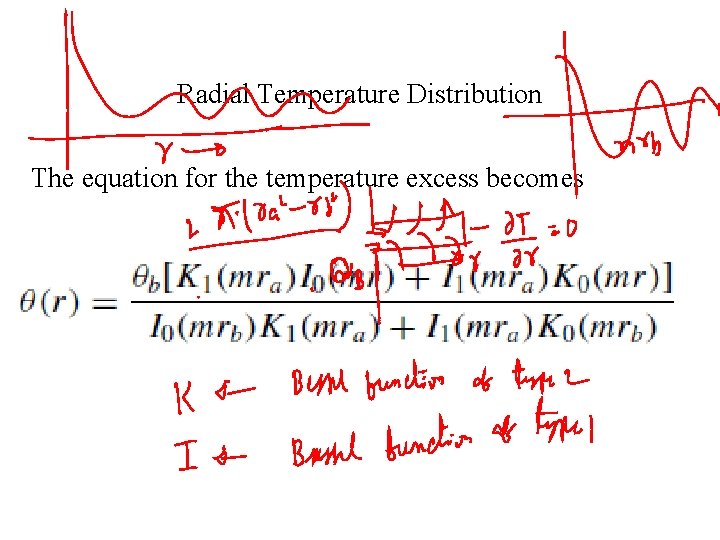 Radial Temperature Distribution
r →
m r b
The equation for the temperature excess becomes
2 π·(ra² − rb²)
∂T/∂r = 0
r
Qb
θ(r) = θb[K1(mra)I0(mr) + I1(mra)K0(mr)] / I0(mrb)K1(mra) + I1(mra)K0(mrb)
K ← Bessel function of type 2
I ← Bessel function of type 1